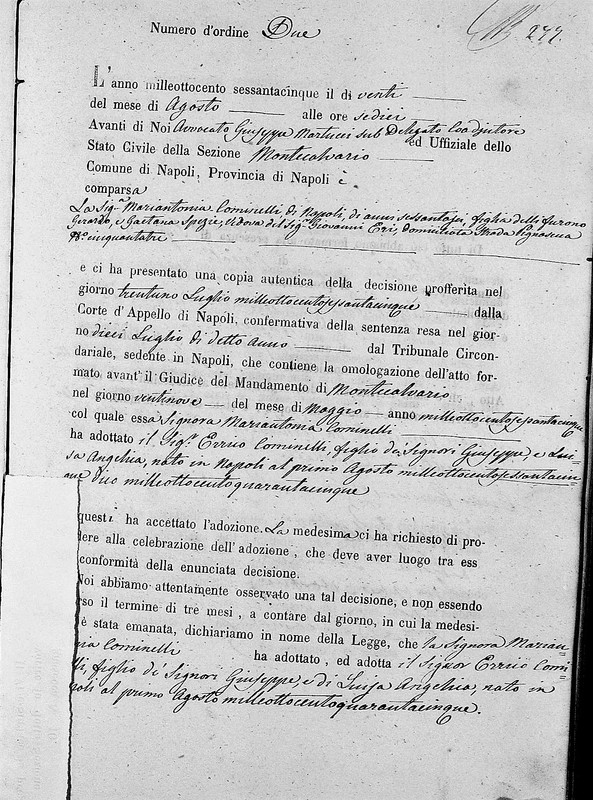 Numero d'ordine Due
277.
L'anno milleottocento sessantacinque il di venti
del mese di Agosto alle ore sedici
Avanti di Noi Avvocato Giuseppe Martucci sub Delegato Coadjutore
ed Uffiziale dello
Stato Civile della Sezione Montecalvario
Comune di Napoli, Provincia di Napoli è
comparsa
La Sig.ª Mariantonia Cominelli, di Napoli, di anni sessantasei, figlia delli furono
Gerardo, e Gaetana Spezie, Vedova del Sig.r Giovanni Eri, domiciliata Strada Pignasecca
N.º cinquantatre
e ci ha presentato una copia autentica della decisione profferita nel
giorno trentuno Luglio milleottocentosessantacinque dalla
Corte d'Appello di Napoli, confermativa della sentenza resa nel gior-
no dieci Luglio di detto anno dal Tribunale Circon-
dariale, sedente in Napoli, che contiene la omologazione dell'atto for-
mato avant'il Giudice del Mandamento di Montecalvario
nel giorno ventinove del mese di Maggio anno milleottocentosessantacinque
col quale essa Signora Mariantonia Cominelli
ha adottato il Sig.r Errico Cominelli, figlio de' Signori Giuseppe, e Lui-
sa Angelia, nato in Napoli al primo Agosto milleottocentosessantacin-
que dico milleottocentoquarantacinque
questi ha accettato l'adozione. La medesima ci ha richiesto di pro-
dere alla celebrazione dell'adozione, che deve aver luogo tra ess
conformità della enunciata decisione.
Noi abbiamo attentamente osservato una tal decisione, e non essendo
rso il termine di tre mesi, a contare dal giorno, in cui la medesi-
è stata emanata, dichiariamo in nome della Legge, che la Signora Marian-
nia Cominelli ha adottato, ed adotta il Signor Errico Comi-
lli, figlio de' Signori Giuseppe, e di Luisa Angelia, nato in
poli al primo Agosto milleottocentoquarantacinque.